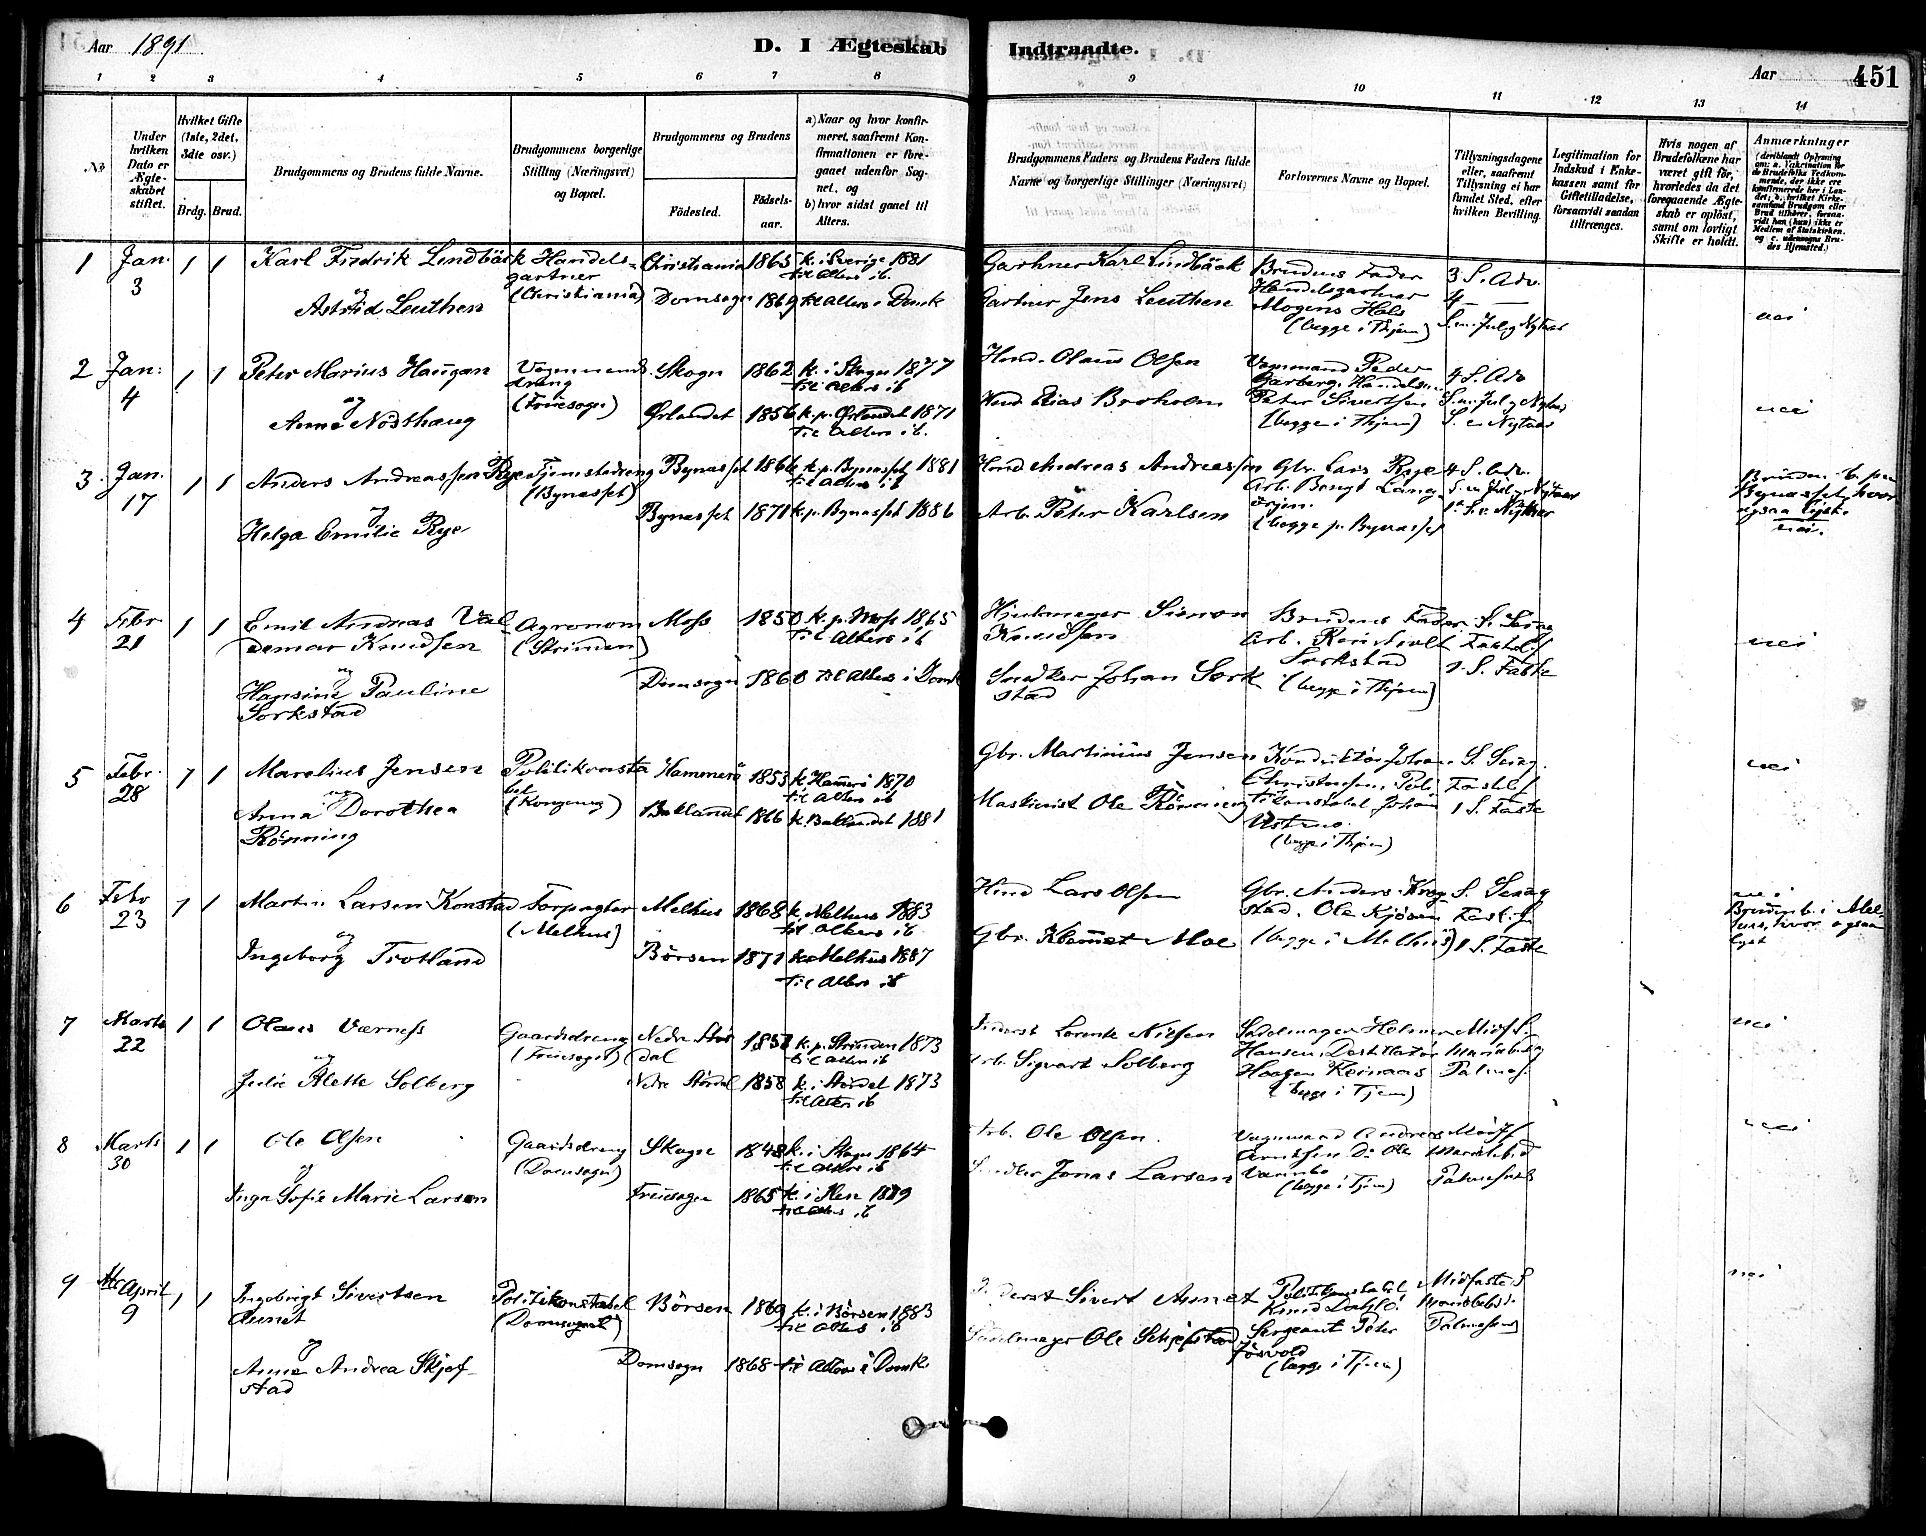 Aar 1891.
D. I Ægteskab
Indtraadte.
Aar
451
1 2 3 4 5 6 7 8 9 10 11 12 13 14
No
Under hvilken Dato er Ægteskabet stiftet.
Hvilket Gifte (1ste, 2det, 3die osv.)
Brdg. Brud.
Brudgommens og Brudens fulde Navne.
Brudgommens borgerlige Stilling (Næringsvei) og Bopæl.
Brudgommens og Brudens
Fødested.
Fødselsaar.
a) Naar og hvor konfirmeret, saafremt Konfirmationen er foregaaet udenfor Sognet, og
b) hvor sidst gaaet til Alters.
Brudgommens Faders og Brudens Faders fulde Navne og borgerlige Stillinger (Næringsvei)
Forlovernes Navne og Bopæl.
Tillysningsdagene eller, saafremt Tillysning ei har fundet Sted, efter hvilken Bevilling.
Legitimation for Indskud i Enkekassen samt for Giftetilladelse, forsaavidt saadan tiltrænges.
Hvis nogen af Brudefolkene har været gift før, hvorledes da det foregaaende Ægteskab er opløst, samt om lovligt Skifte er holdt.
Anmærkninger
1 Jan. 3 1 1
Karl Fredrik Lindbäck
og
Astrid Leuthen
Handelsgartner
(Christiania)
Christiania 1863 k. i Sverige 1881
til Alters ib.
Domsogn 1869 til Alters i Domk
Gartner Karl Lindbäck
Gartner Jens Leuthen
Brudens Fader
Handelsgartner
Mogens Hals
(begge i Thjem)
3 S. Adv.
4 —
S. m. Jul og Nytaar
nei
2 Jan: 4 1 1
Peter Marius Haugan
og
Anne Nosthaug
Vognmandsdreng
(Fruesogn)
Skogn 1862 k. i Skogn 1877
til Alters ib
Ørlandet 1856 k. p. Ørlandet 1871
til Alters ib.
Hmd. Olaus Olsen
Hmd Elias Broholm
Vognmand Peder
Garberg. Handelsm.
Peter Sivertsen
(begge i Thjem)
4 S. Adv
S. m. Jul og Nytaar
S. e. Nytaar
nei
3. Jan. 17 1 1
Anders Andreassen Rye
og
Helga Emilie Rye
Tjenestedreng
(Bynæsset)
Bynæsset 1866 k. p. Bynæsset 1881
til Alters ib
Bynæsset 1871 k. p. Bynæsset 1886
Hmd Andreas Andreassen
Arb. Peter Karlsen
Gbr. Lars Rye
Arb. Bengt Lang-
ørjen.
(begge p. Bynæsset
4 S. Adv.
S. m. Jul og Nytaar
1 S. e. Nytaar
Bruden b. paa
Bynæsset, hvor
ogsaa lyst.
nei.
4 Febr 21 1 1
Emil Andreas Val-
demar Knudsen
og
Hansine Pauline
Sorkstad
Agronom
(Strinden)
Moss 1850 k. p. Moss 1865
til Alters ib
Domsogn 1860 til Alters i Domk
Hjulmager Simon
Knudsen
Snedker Johan Sork
stad
Brudens Fader
Arb. Reinholt
Sorkstad
(begge i Thjem)
Fastel.
1. S. Faste
nei
5 Febr. 28 1 1
Marelius Jensen
og
Anna Dorothea
Rønning
Politikonsta
bel
(Kongeng)
Hammerø 1853 k. Hamerø 1870
til Alters ib
Baklandet 1866 k. Baklandet 1881
Gbr. Martinius Jensen
Maskinist Ole Rönning
Konduktør Johan
Christensen, Poli
tikonstabel Johan
(begge i Thjem)
Fastel.
1 S. Faste
nei
6 Febr 23 1 1
Martin Larsen Konstad
og
Ingeborg Trotland
Forpagter
(Melhus)
Melhus 1868 k. Melhus 1883
til Alters ib
Börsen 1871 k. Melhus 1887
til Alters ib
Hmd Lars Olsen
Gbr. Klemet Moe
Gbr. Anders Krog
stad. Ole Kjösen
(begge i Melhus)
1 S. Faste
nei
Bruden b. i Mel-
hus, hvor ogsaa
lyst
7 Marts 22 1 1
Olaus Værness
og
Julie Alette Solberg
Gaardsdreng
(Fruesogn)
Nedre Stør
dal
k. p. Strinden 1873
til Alters ib
Nedre Stördal 1858 k. i Stördal 1873
til Alters ib
Inderst Lorents Nilsen
Arb. Sigvart Solberg
Sadelmager Helmer
Hansen. Destillatør
Haagen
(begge i Tjem)
Midf S.
Mariæ bud
Palmes.
nei
8 Marts 30 1 1
Ole Olsen
og
Inga Sofie Marie Larsen
Gaardsdreng
(Domsogn)
Skogn 1848 k. i Skogn 1864
til Alters ib
Fruesogn 1865
til Alters ib
Arb. Ole Olsen.
Snedker Jonas Larsen
Vognmand Andreas
Arntsen Do Ole
(begge i Tjem)
Midf S
Mariæ bud
nei
9 April 9 1 1
Ingebrigt Sivertsen
Aunet
og
Anne Andrea Skjef-
stad
Politikonstabel
(Domsognet)
Börsen 1869 k. i Börsen 1883
til Alters ib
Domsogn 1868 til Alters i Domk
Inderst Sivert Aunet
Sadelmager Ole Schjefstad
Politikonstabel
Knud Dahlö.
Sergeant Peter
Jösvold
(begge i Tjem)
Midfaste S
Mariæ bebud.
Palmesøn
nei